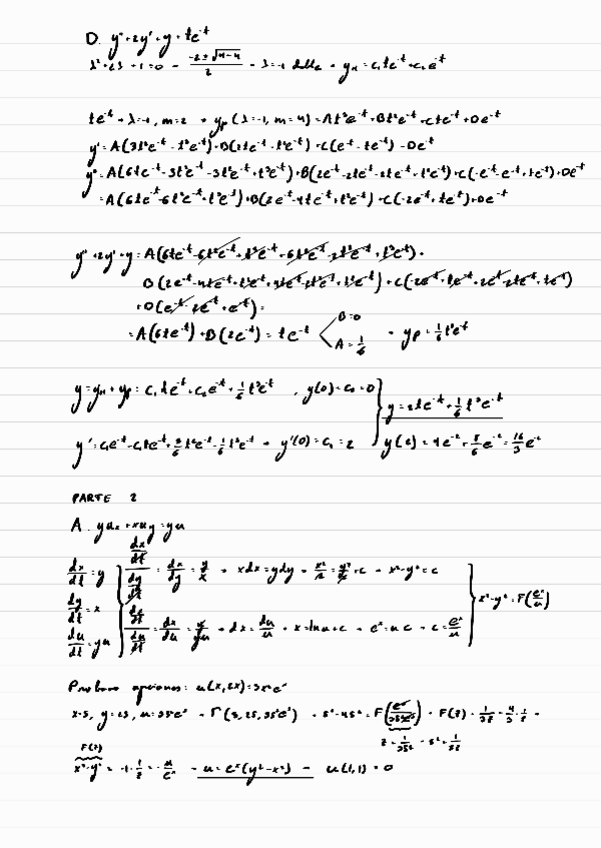 D. y'' + 2y' + y = te^-t
λ² + 2λ + 1 = 0 → (-2 ± √(4-4))/2 → λ = -1 doble → y_H = c₁te^-t + c₂e^-t
te^-t → λ = -1, m = 2 → y_p (λ = -1, m = 4) = At³e^-t + Bt²e^-t + Cte^-t + De^-t
y' = A(3t²e^-t - t³e^-t) + B(2te^-t - t²e^-t) + C(e^-t - te^-t) - De^-t
y'' = A(6te^-t - 3t²e^-t - 3t²e^-t + t³e^-t) + B(2e^-t - 2te^-t - 2te^-t + t²e^-t) + C(-e^-t - e^-t + te^-t) + De^-t
= A(6te^-t - 6t²e^-t + t³e^-t) + B(2e^-t - 4te^-t + t²e^-t) + C(-2e^-t + te^-t) + De^-t
y'' + 2y' + y = A(6te^-t - 6t²e^-t + t³e^-t + 6t²e^-t - 2t³e^-t + t³e^-t) +
B(2e^-t - 4te^-t + t²e^-t + 4te^-t - 2t²e^-t + t²e^-t) + C(-2e^-t + te^-t + 2e^-t - 2te^-t + te^-t)
+ D(e^-t - 2e^-t + e^-t) =
= A(6te^-t) + B(2e^-t) = te^-t < B = 0, A = 1/6 → y_p = 1/6 t³e^-t
y = y_H + y_p = c₁te^-t + c₂e^-t + 1/6 t³e^-t, y(0) = c₂ = 0 } y = 2te^-t + 1/6 t³e^-t
y' = c₁e^-t - c₁te^-t + 3/6 t²e^-t - 1/6 t³e^-t → y'(0) = c₁ = 2 } y(2) = 4e^-2 + 8/6 e^-2 = 16/3 e^-2
PARTE 2
A. yu_x + xu_y = yu
dx/dt = y } (dx/dt)/(dy/dt) = dx/dy = y/x → xdx = ydy → x²/2 = y²/2 + c → x² - y² = c
dy/dt = x
du/dt = yu } (dx/dt)/(du/dt) = dx/du = y/yu → dx = du/u → x = lnu + c → e^x = uc → c = e^x/u } x² - y² = F(e^x/u)
Probamos opciones: u(x, 2x) = 3x²e^x
x = s, y = 2s, u = 3s²e^s → Γ(s, 2s, 3s²e^s) → s² - 4s² = F(e^s/3s²e^s) →
z = 1/3s² → s² = 1/3z
F(z)
x² - y² = -1 · 1/z = -u/e^x → u = e^x(y² - x²) → u(1,1) = 0